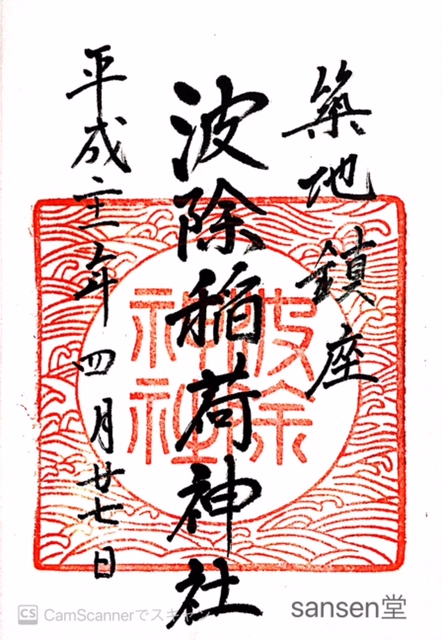 築地 鎮座
波除稲荷神社
平成二十一年四月廿七日
波除
神社
CS CamScannerでスキャン
sansen堂